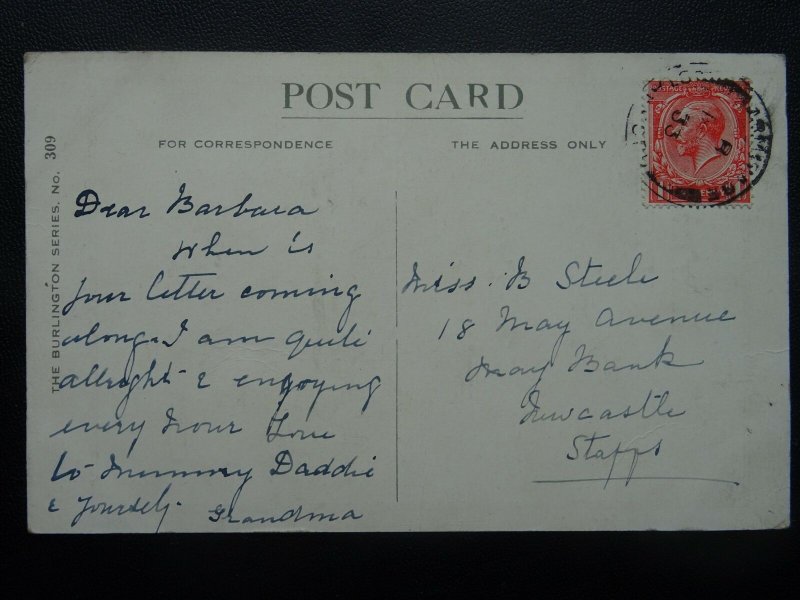 POST CARD
FOR CORRESPONDENCE
THE ADDRESS ONLY
THE BURLINGTON SERIES. No. 309
Dear Barbara
When is
your letter coming
along. I am quite
allright & enjoying
every hour Love
to Mummy Daddie
& yourself.
Grandma
Miss. B Steele
18 May Avenue
May Bank
Newcastle
Staffs
33